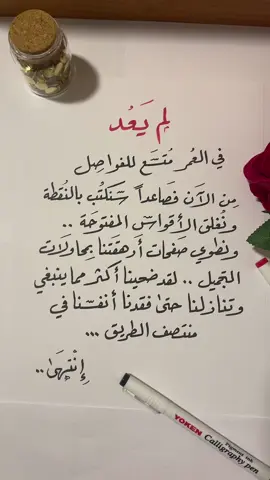 لم يَعُد
في العُمر مُتسَع للفواصِل
مِن الآن فصَاعداً سَنكتُب بالنُقطة
ونُغلق الأقواسَ المفتوحَة ..
ونطوي صَفحات أرهقتنا بِمحاولات
التجميل .. لقد ضحينا أكثر مما ينبغي
وتنازلنا حتىٰ فقدنا أنفسنا في
منتصف الطريق ...
إِنْتِهَىٰ ..
YOKEN
Pigment Ink
Calligraphy pen